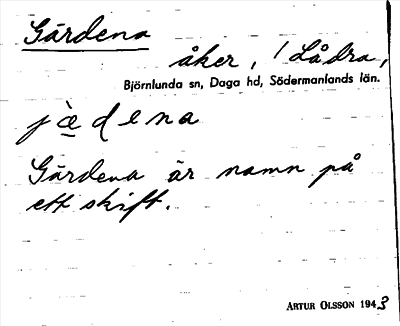 Gärdena
åker, / Lådra,
Björnlunda sn, Daga hd, Södermanlands län.
jæ̀dena
Gärdena är namn på
ett skift.
ARTUR OLSSON 1943